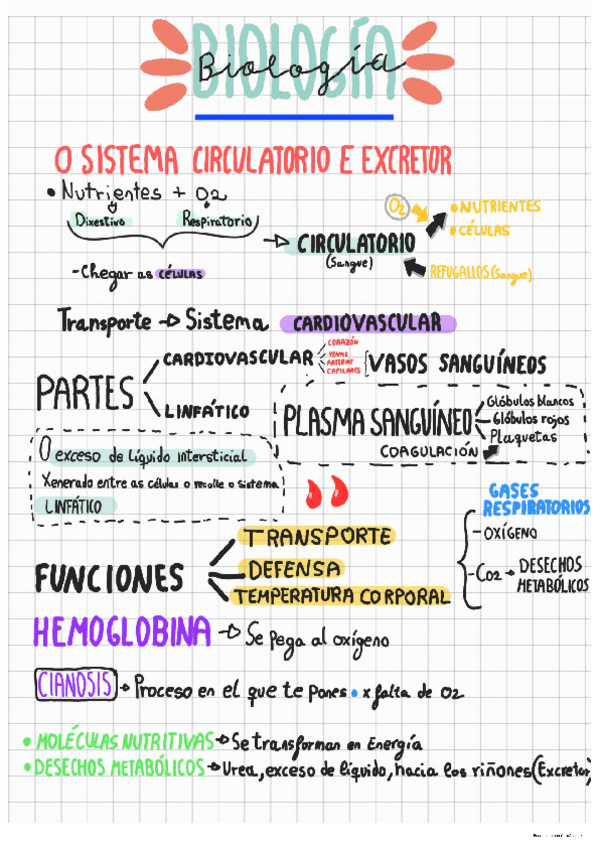 BIOLOGÍA
Biología
O SISTEMA CIRCULATORIO E EXCRETOR
• Nutrientes + O2
Dixestivo Respiratorio
CIRCULATORIO
(Sangue)
O2
• NUTRIENTES
• CÉLULAS
REFUGALLOS (Sangue)
-Chegar as CÉLULAS
Transporte → Sistema CARDIOVASCULAR
PARTES
CARDIOVASCULAR
CORAZÓN
VENAS
ARTERIAS
CAPILARES
VASOS SANGUÍNEOS
LINFÁTICO
PLASMA SANGUÍNEO
Glóbulos blancos
Glóbulos rojos
Plaquetas
COAGULACIÓN
O exceso de líquido intersticial
Xenerado entre as células o recolle o sistema
LINFÁTICO
GASES
RESPIRATORIOS
-OXÍGENO
-CO2 → DESECHOS
METABÓLICOS
FUNCIONES
TRANSPORTE
DEFENSA
TEMPERATURA CORPORAL
HEMOGLOBINA → Se pega al oxígeno
CIANOSIS → Proceso en el que te pones • x falta de O2
• MOLÉCULAS NUTRITIVAS → Se transforman en Energía
• DESECHOS METABÓLICOS → Urea, exceso de líquido, hacia los riñones (Excretor)